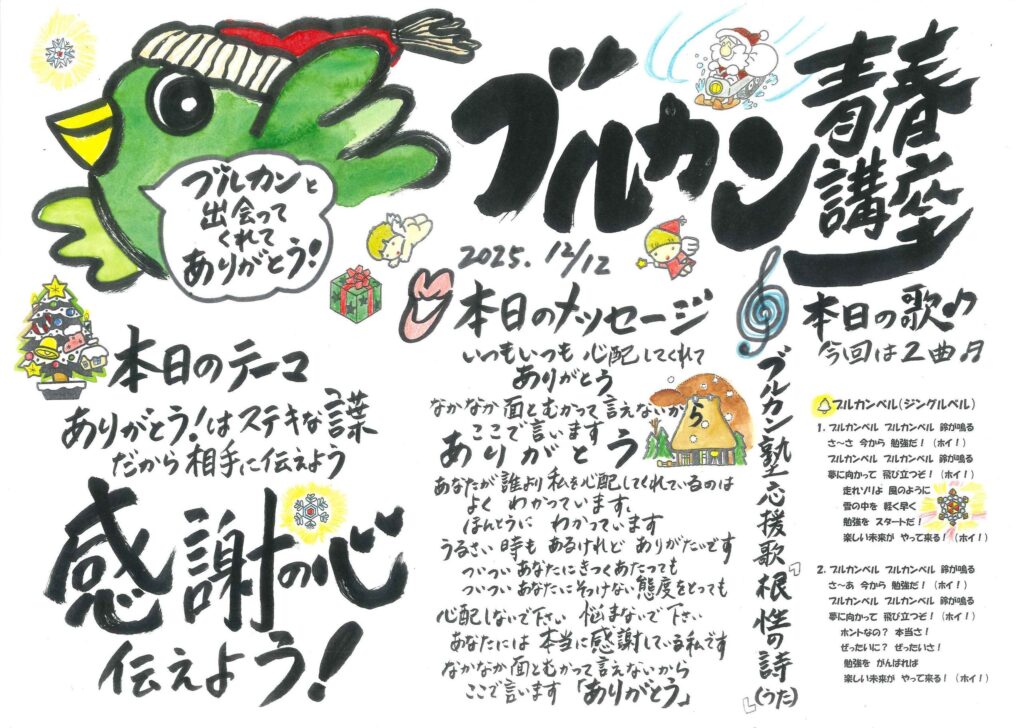 ブルカン
青春
講座
ブルカンと
出会って
くれて
ありがとう!
2025. 12/12
本日のテーマ
ありがとう!はステキな言葉
だから相手に伝えよう
感謝の心
伝えよう!
本日のメッセージ
いつもいつも 心配してくれて
ありがとう
なかなか面とむかって言えないから
ここで言います
ありがとう
あなたが誰より私を心配してくれているのは
よく わかっています。
ほんとうに わかっています
うるさい時も あるけれど ありがたいです
ついつい あなたにきつくあたっても
ついつい あなたにそっけない態度をとっても
心配しないで下さい 悩まないで下さい
あなたには 本当に感謝している私です
なかなか面とむかって言えないから
ここで言います「ありがとう」
本日の歌♪
今回は2曲♬
ブルカン塾応援歌『根性の詩(うた)』
ブルカンベル(ジングルベル)
1. ブルカンベル ブルカンベル 鈴が鳴る
さ〜さ 今から 勉強だ!(ホイ!)
ブルカンベル ブルカンベル 鈴が鳴る
夢に向かって 飛び立つぞ!(ホイ!)
走れソリよ 風のように
雪の中を 軽く早く
勉強を スタートだ!
楽しい未来が やって来る!(ホイ!)
2. ブルカンベル ブルカンベル 鈴が鳴る
さ〜あ 今から 勉強だ!(ホイ!)
ブルカンベル ブルカンベル 鈴が鳴る
夢に向かって 飛び立つぞ!(ホイ!)
ホントなの? 本当さ!
ぜったいに? ぜったいさ!
勉強を がんばれば
楽しい未来が やって来る!(ホイ!)